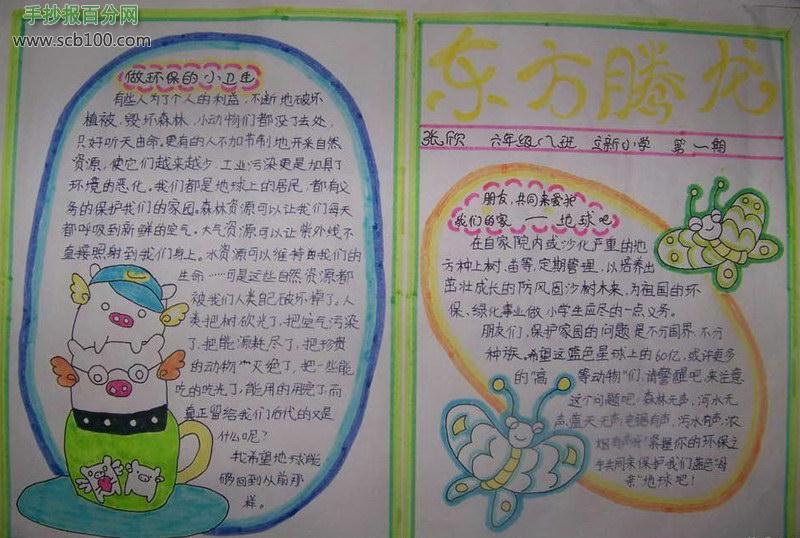 手抄报百分网
www.scb100.com
做环保的小卫生
有些人为了个人的利益，不断地破坏
植被，毁坏森林，小动物们都没了去处，
只好听天由命。更有的人不加节制地开采自然
资源，使它们越来越少，工业污染更是加具了
环境的恶化。我们都是地球上的居民，都有义
务的保护我们的家园。森林资源可以让我们每天
都呼吸到新鲜的空气。大气资源可以让紫外线不
直接照射到我们身上。水资源可以维持由我们的
生命……可是这些自然资源都
被我们人类自己破坏掉了。人
类把树砍光了，把空气污染
了，把能源耗尽了，把珍贵
的动物“灭绝了，把一些能
吃的吃光了，能用的用完了而
真正留给我们后代的又是
什么呢？
我希望地球能
够回到从前那
样。
东方腾龙
张欣 六年级八班 立新小学 第一期
朋友，共同来爱我
我们的家——地球吧
在自家院内或沙化严重的地
方种上树、苗等，定期管理，以培养出
茁壮成长的防风固沙树木来，为祖国的环
保、绿化事业做小学生应尽的一点义务。
朋友们，保护家园的问题是不分国界、不分
种族。希望这蓝色星球上的60亿，或许更多
的“高等动物”们，请警醒吧，来注意
这个问题吧！森林无声，河水无
声，蓝天无声；电锯有声，污水有声，浓
烟有声
你的环保之
手共同来保护我们蓝色“母
亲”地球吧！